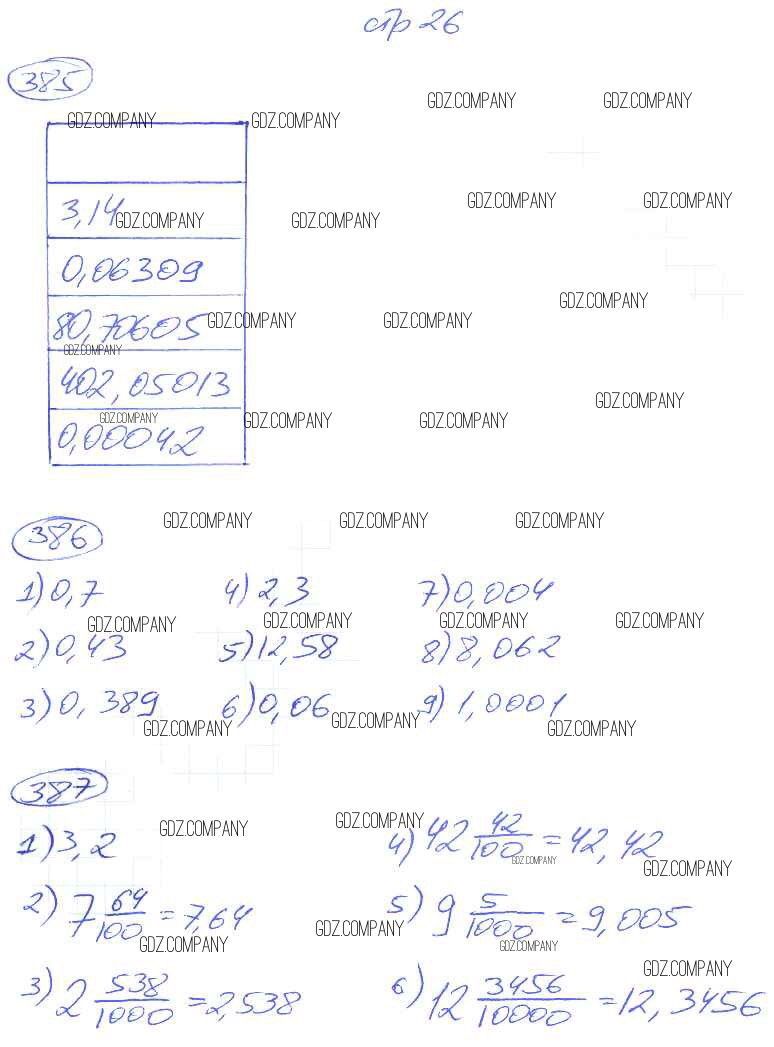 стр 26
385
GDZ.COMPANY GDZ.COMPANY
GDZ.COMPANY GDZ.COMPANY
GDZ.COMPANY GDZ.COMPANY
3,14 GDZ.COMPANY GDZ.COMPANY
0,06309
GDZ.COMPANY
80,70605 GDZ.COMPANY GDZ.COMPANY
GDZ.COMPANY
402,05013
GDZ.COMPANY
GDZ.COMPANY GDZ.COMPANY GDZ.COMPANY
0,00042
386 GDZ.COMPANY GDZ.COMPANY GDZ.COMPANY
1) 0,7 4) 2,3 7) 0,004
GDZ.COMPANY GDZ.COMPANY GDZ.COMPANY GDZ.COMPANY
2) 0,43 5) 12,58 8) 8,062
3) 0,389 6) 0,06 9) 1,0001
GDZ.COMPANY GDZ.COMPANY GDZ.COMPANY
387
GDZ.COMPANY GDZ.COMPANY
1) 3,2 4) 42 42/100 = 42,42
GDZ.COMPANY GDZ.COMPANY
2) 7 64/100 = 7,64 5) 9 5/1000 = 9,005
GDZ.COMPANY GDZ.COMPANY GDZ.COMPANY
GDZ.COMPANY
3) 2 538/1000 = 2,538 6) 12 3456/10000 = 12,3456